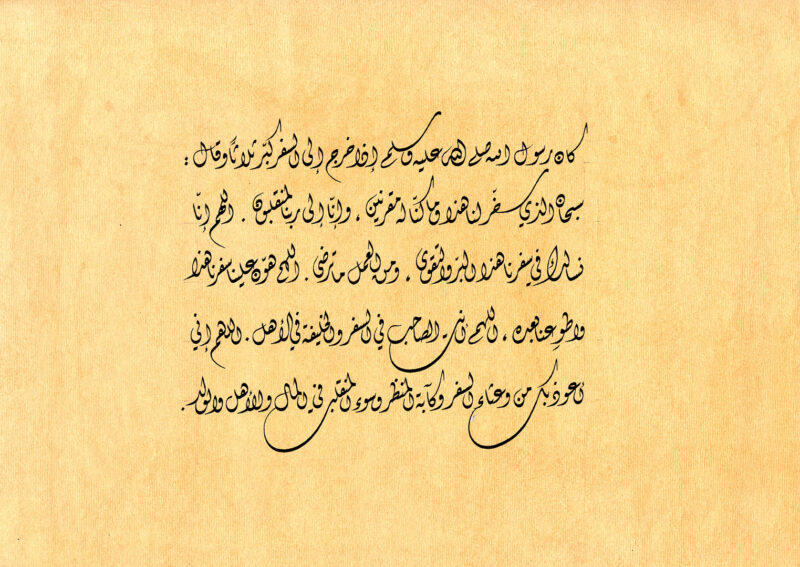 كان رسول الله صلى الله عليه وسلم إذا خرج إلى السفر كبّر ثلاثًا وقال :
سبحان الذي سخّر لنا هذا وما كنّا له مقرنين ، وإنّا إلى ربنا لمنقلبون . اللهم إنّا
نسألك في سفرنا هذا البرّ والتقوى ، ومن العمل ما ترضى . اللهم هوّن علينا سفرنا هذا
واطوِ عنا بعده ، اللهم أنت الصاحب في السفر والخليفة في الأهل . اللهم إني
أعوذ بك من وعثاء السفر وكآبة المنظر وسوء المنقلب في المال والأهل والولد .